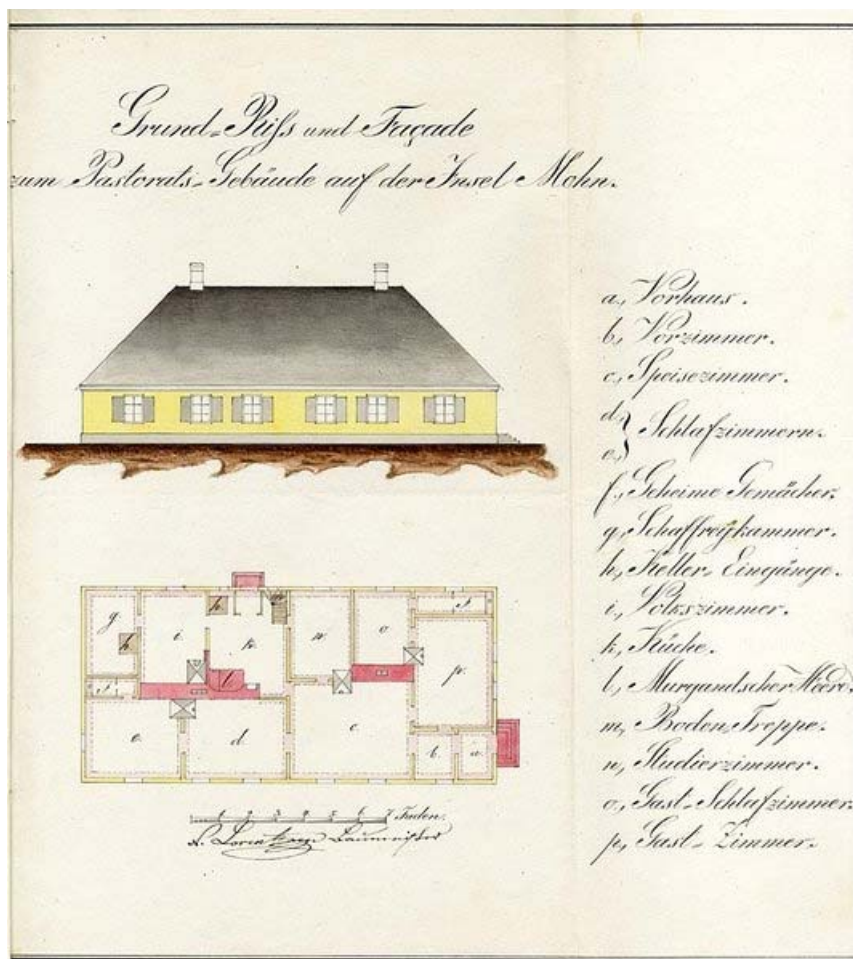 Grund-Riss und Façade
zum Pastorats-Gebäude auf der Insel Mohn.
a, Vorhaus.
b, Vorzimmer.
c, Speisezimmer.
d,
e,} Schlafzimmern.
f, Geheime Gemächer.
g, Schaffreykammer.
h, Keller-Eingänge.
i, Volkszimmer.
k, Küche.
l, Murgandscher Heerd.
m, Boden-Treppe.
n, Studierzimmer.
o, Gast-Schlafzimmer.
p, Gast-Zimmer.
g
h
i
h
k
l
n
o
f
p
f
e
d
c
b
a
1 2 3 4 5 6 7 Faden.
Baumeister